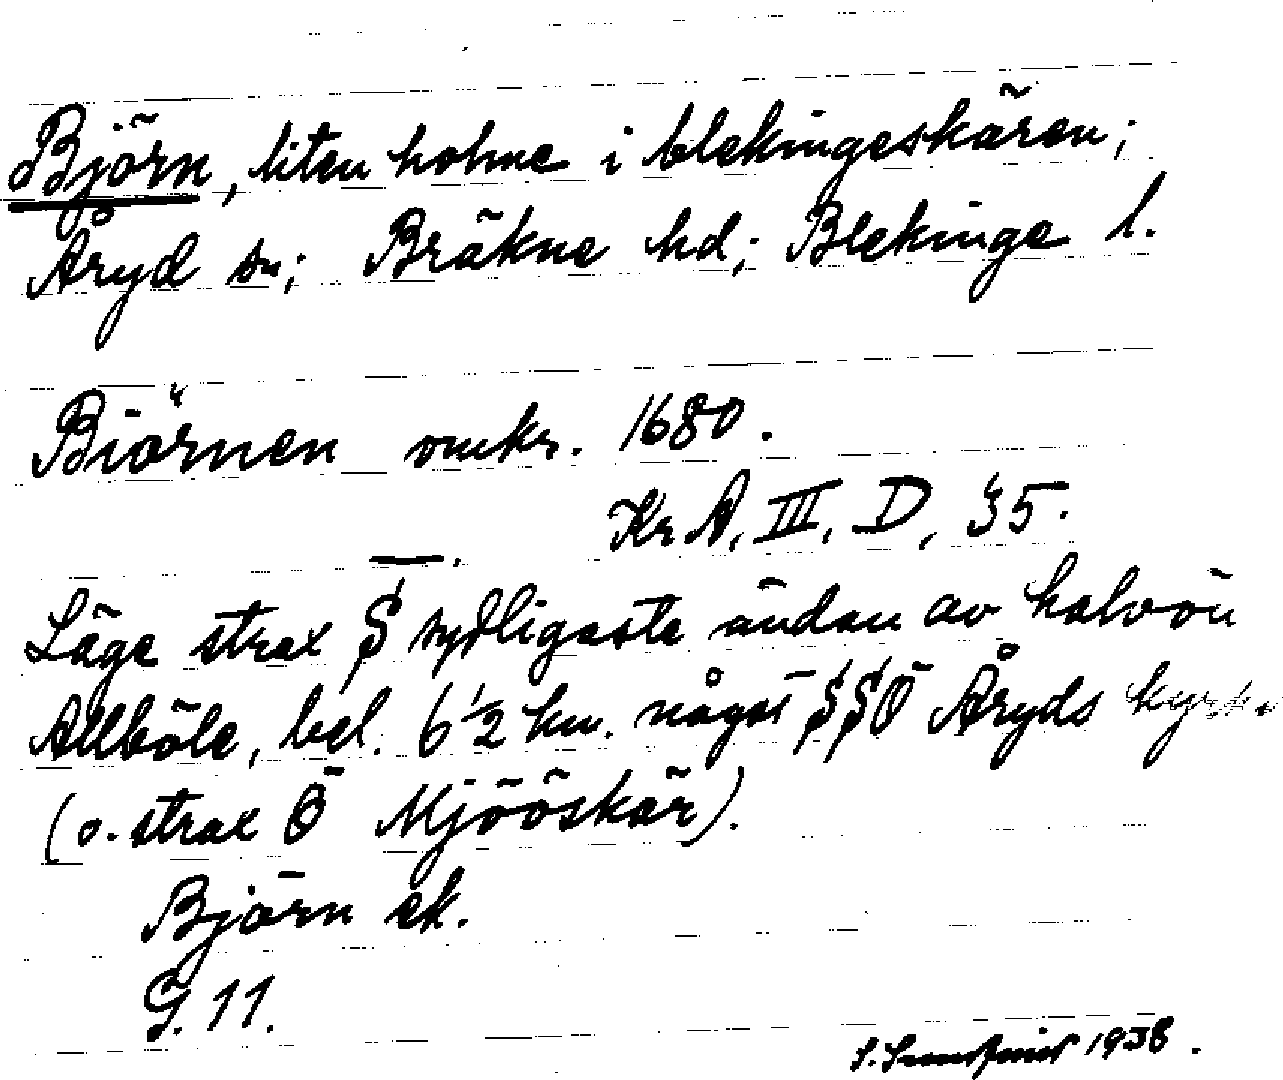 Björn, liten holme i blekingeskären;
Åryd sn; Bräkne hd; Blekinge l.
Biörnen omkr. 1680.
Kr A, III, D, 35.
—.
Läge strax S sydligaste ändan av halvön
Allböle, bel. 6 1/2 km. något SSÖ Åryds kyrka
(o. strax Ö Mjööskär).
Björn ek.
G. 11.
S. 1938.